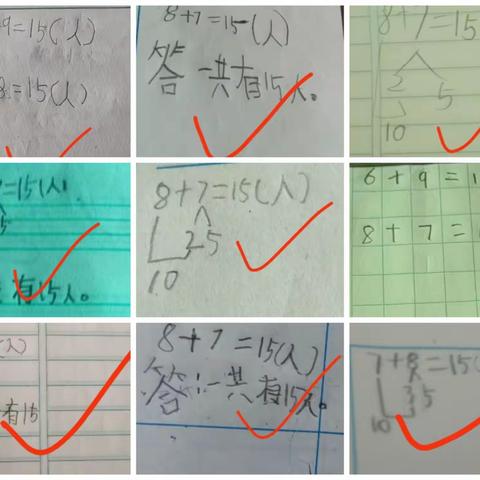 9=15(人)
8=15(人)
8+7=15(人)
答一共有15人。
8+7=15
2
5
10
=15(人)
5
有15人。
8+7=15(人)
2 5
10
6+9=1
8+7=
人)
有15
8+7=15(人)
答:一共有15人。
7+8=15(
3 5
10